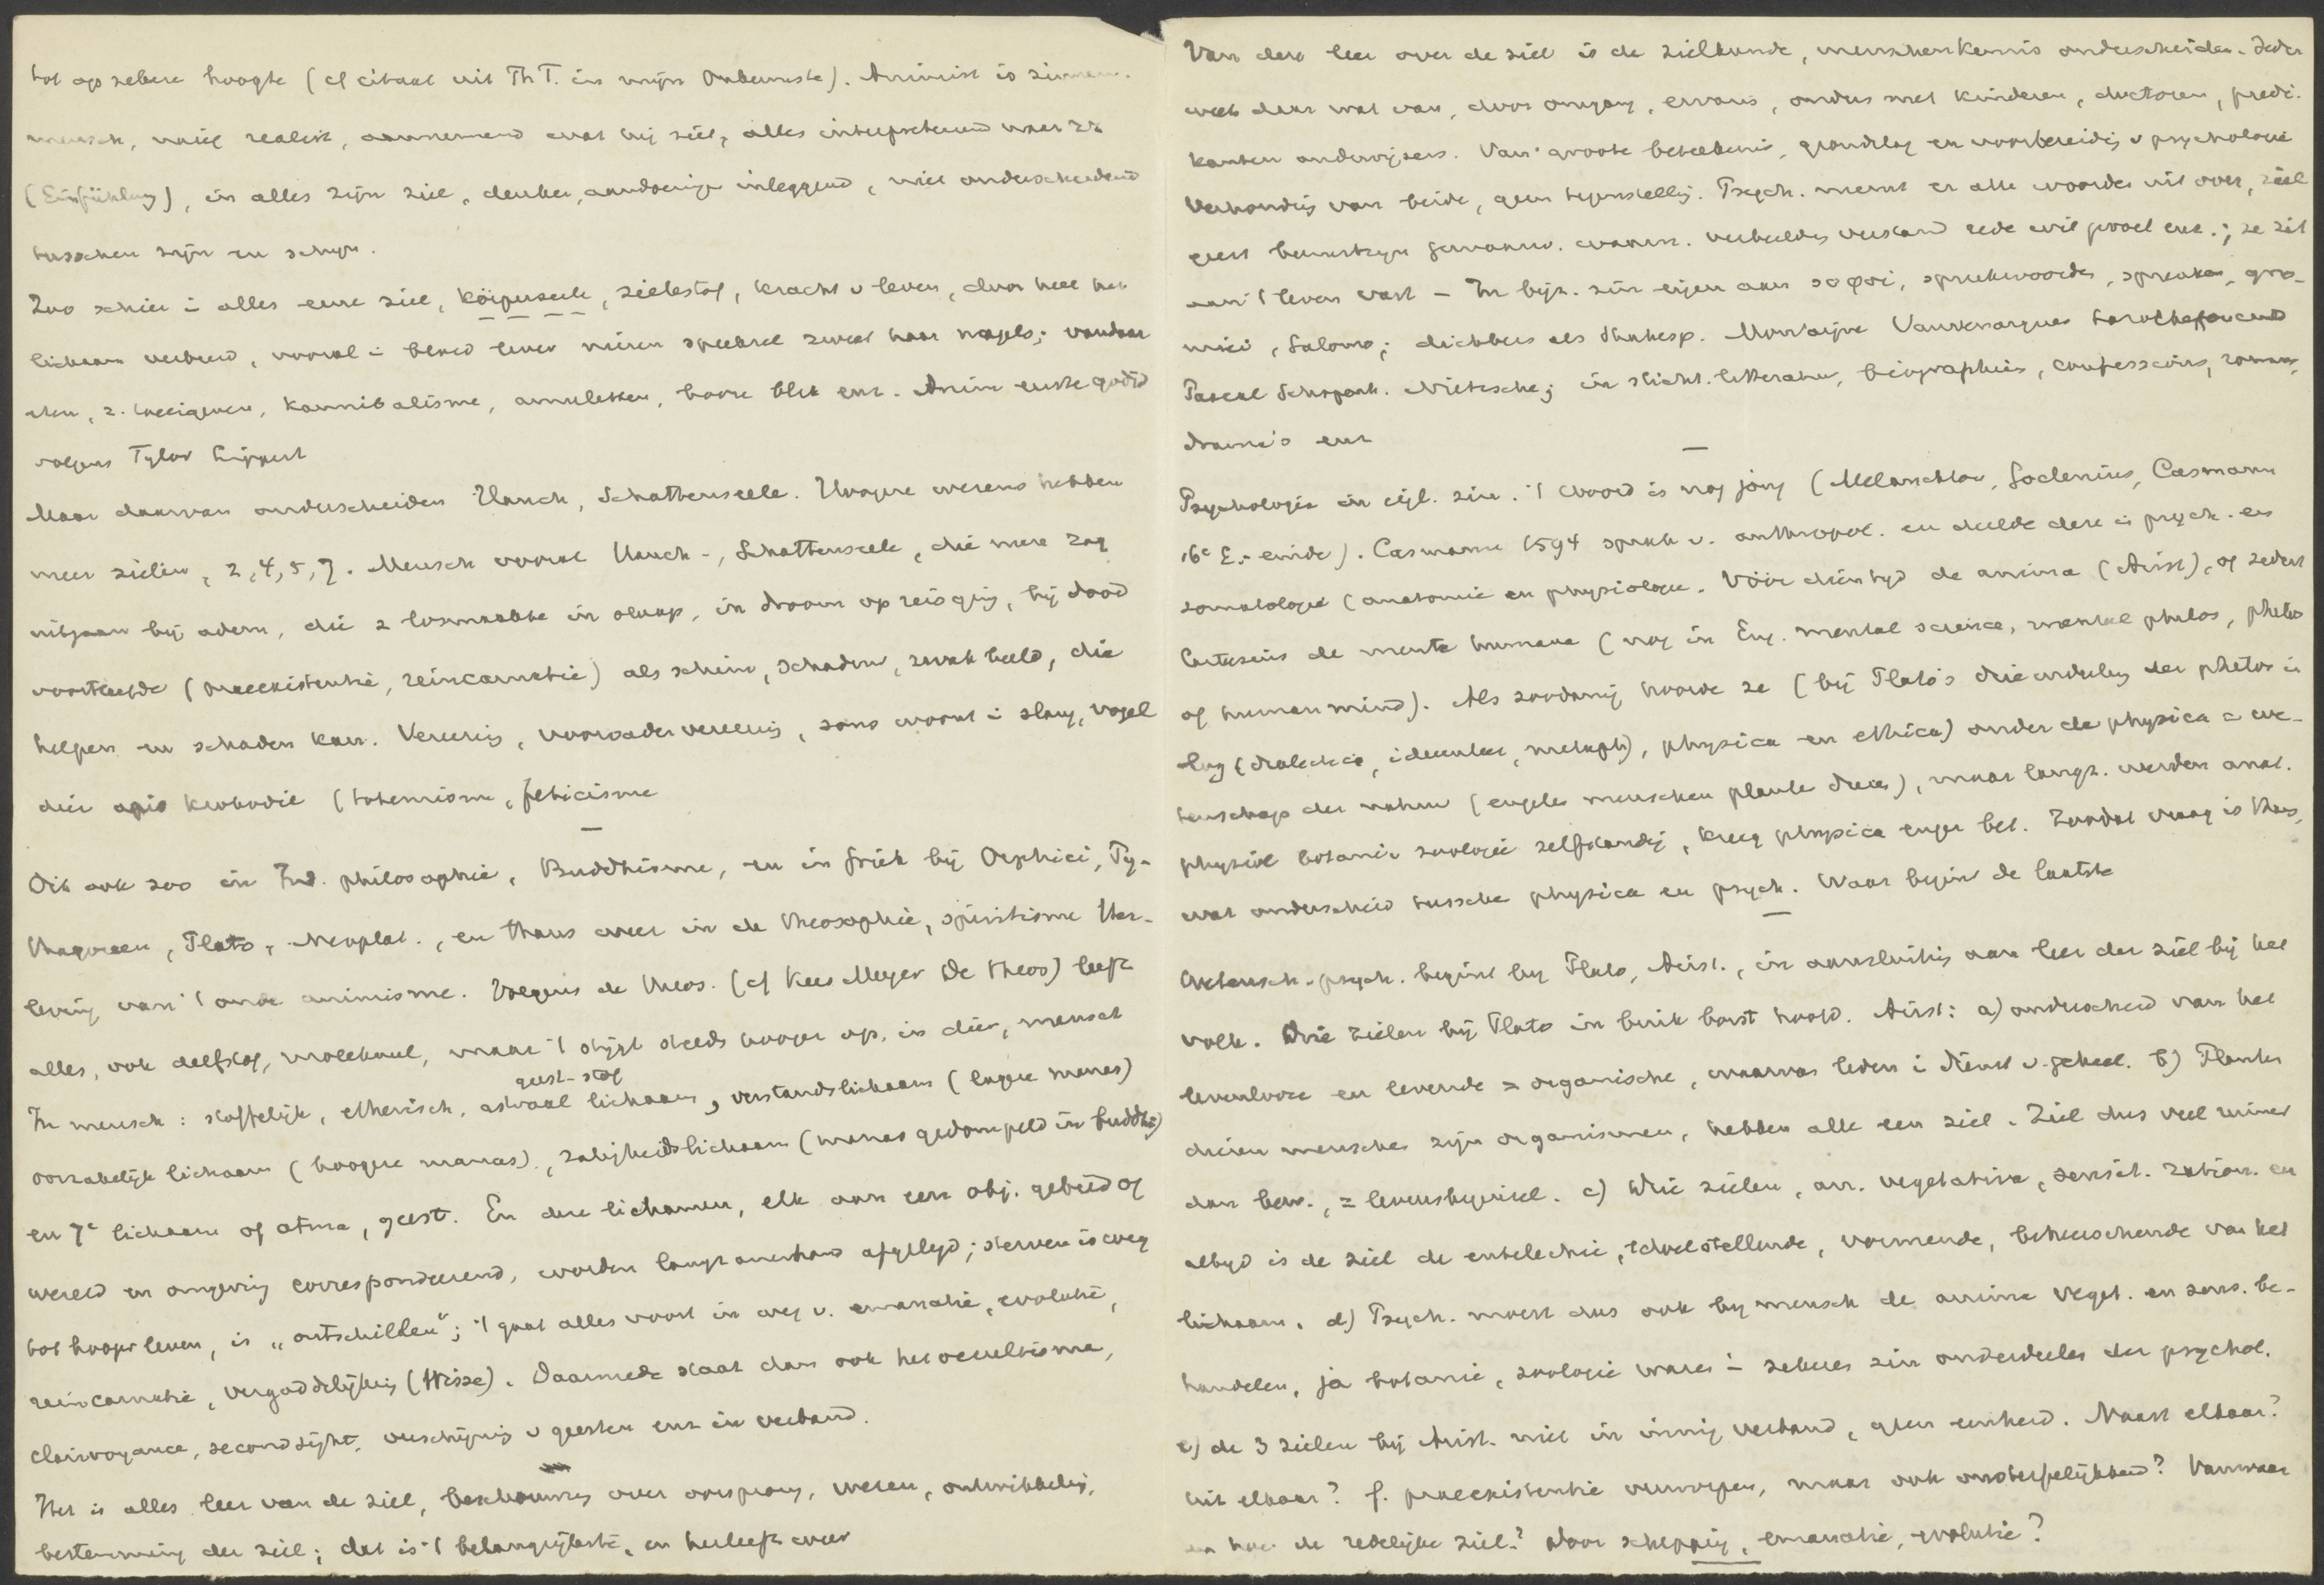 tot op zekere hoogte (cf citaat uit Th T. in mijn Onbewuste). Animist is
mensch, naïef realist, aannemend wat hij ziet, alles
(Einfühlung), in alles zijn ziel, denken, aandoeningen inleggend, niet onderscheidend
tusschen zijn en schijn.
Zoo schier i alles eene ziel, Körperseele, zielestof, kracht v leven, door heel het
lichaam verbreid, vooral i bloed lever nieren speeksel zweet haar nagels; vandaar
eten, z. kannibalisme, amuletten, booze blik enz. Anim eerste godsd
volgens Tylor Lippert
Maar daarvan onderscheiden Hauch, Schattenseele. Hoogere wezens hebben
meer zielen, 2, 4, 5, 7. Mensch vooral Hauch-, Schattenseele, die men zag
uitgaan bij adem, die z losmaakte in slaap, in droom op reis ging, bij dood
voortleefde (praeexistentie, reincarnatie) als schim, schaduw, zwak beeld, die
helpen en schaden kan. Vereering, voorvadervereering, soms woont i slang, vogel
dier apis krokodil (totemisme, feticisme
Dit ook zoo in Ind. philosophie, Buddhisme, en in Griek bij Orphici, Py-
thagoreen, Plato, Neoplat., en thans weer in de theosophie, spiritisme Her-
leving van 't oude animisme. Volgens de theos. (cf Kees Meyer De theos) leeft
alles, ook delfstof, molekuul, maar 't stijgt steeds hooger op, in dier, mensch
geest-stof
In mensch: stoffelijk, etherisch, astraal lichaam, verstandslichaam (lagere manas)
oorzakelijk lichaam (hoogere manas), zaligheidslichaam (manas gedompeld in buddhi)
en 7e lichaam of atma, geest. En deze lichamen, elk aan een obj. gebied of
wereld en omgeving correspondeerend, worden langzamerhand afgelegd; sterven is weg
tot hooger leven, is „ontschillen"; 't gaat alles voort in weg v. emanatie, evolutie,
reincarnatie, vergoddelijking (Hisse). Daarmede staat dan ook het occultisme,
clairvoyance, second sight, verschijning v geesten enz in verband.
Het is alles leer van de ziel, beschouwing over oorsprong, wezen, ontwikkeling,
bestemming der ziel; dat is 't belangrijkste, en herleeft weer
Van deze leer over de ziel is de zielkunde, menschenkennis onderscheiden. Ieder
weet daar wat van, door omgang, ervaring, ouders met kinderen, doctoren, predi-
kanten onderwijzers. Van groote beteekenis, grondslag en voorbereiding v psychologie
Verhouding van beide, geen tegenstelling. Psych. neemt er alle woorden uit over, ziel
geest bewustzijn gewaarw. waarn. verbeelding verstand rede wil gevoel enz.; ze zit
aan 't leven vast - In bijz. zin eigen aan σοφοι, spreekwoorden, spreuken, gno-
mici, Salomo; dichters als Shakesp. Montaigne Vauvenargues Larochefoucauld
Pascal Schopenh. Nietzsche; in sticht. litteratuur, biographieën, confessions, romans,
drama's enz
Psychologie in eigl. zin. 't woord is nog jong (Melanchton, Goclenius, Casmann
16e E. einde). Casmann 1594 sprak v. anthropol. en deelde deze i psych. en
somatologie (anatomie en physiologie. Vóór dien tijd de anima (Arist), of sedert
Cartesius de mente humana (nog in Eng. mental science, mental philos, philos
of human mind). Als zoodanig hoorde ze (bij Plato's drieindeeling der philos in
log (dialectica, ideenleer, metaph), physica en ethica) onder de physica = we-
tenschap der natuur (engelen menschen planten dieren), maar langz. werden anat.
physiol botanie zoologie zelfstandig, kreeg physica enger bet. Zoodat vraag is thans,
wat onderscheid tussche physica en psych. Waar begint de laatste
Wetensch. psych. begint bij Plato, Arist., in aansluiting aan leer der ziel bij het
volk. Drie zielen bij Plato in buik borst hoofd. Arist: a) onderscheid van het
levenlooze en levende = organische, waarvan leden i dienst v. geheel. b) Planten
dieren menschen zijn organismen, hebben alle een ziel. Ziel dus veel ruimer
dan bew., = levensbeginsel. c) Drie zielen, an. vegetativa, sensit. ration. en
altijd is de ziel de entelechie, 't doelstellende, vormende, beheerschende van het
lichaam. d) Psych. moest dus ook bij mensch de anima veget. en sens. be-
handelen, ja botanie, zoologie waren i zekeren zin onderdeelen der psychol.
e) de 3 zielen bij Arist. niet in innig verband, geen eenheid. Naast elkaar?
uit elkaar? f. praeexistentie verworpen, maar ook onsterfelijkheid? Vanwaar
en hoe de redelijke ziel? Door schepping, emanatie, evolutie?